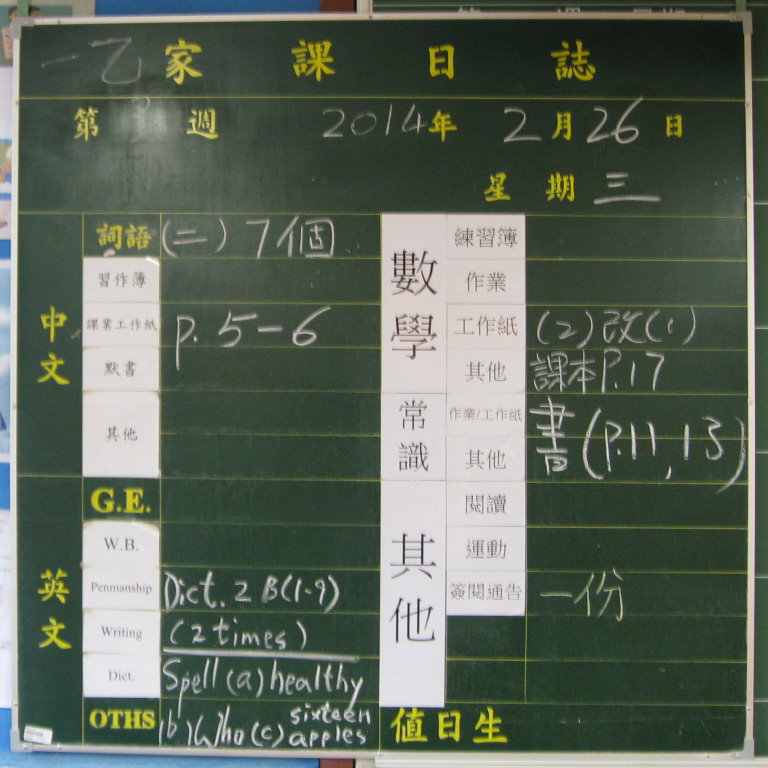 一乙家課日誌
第3週 2014年2月26日
星期三
中文
詞語 (二) 7個
習作簿
課業工作紙 p. 5-6
默書
其他
英文
G.E.
W.B.
Penmanship Dict. 2 B(1-9)
Writing (2 times)
Dict. Spell (a) healthy
OTHS (b) Who (c) sixteen apples
數學
練習簿
作業
工作紙 (2)改(1)
其他 課本P.17
常識
作業/工作紙 書(p.11, 13)
其他
其他
閱讀
運動
簽閱通告 一份
值日生